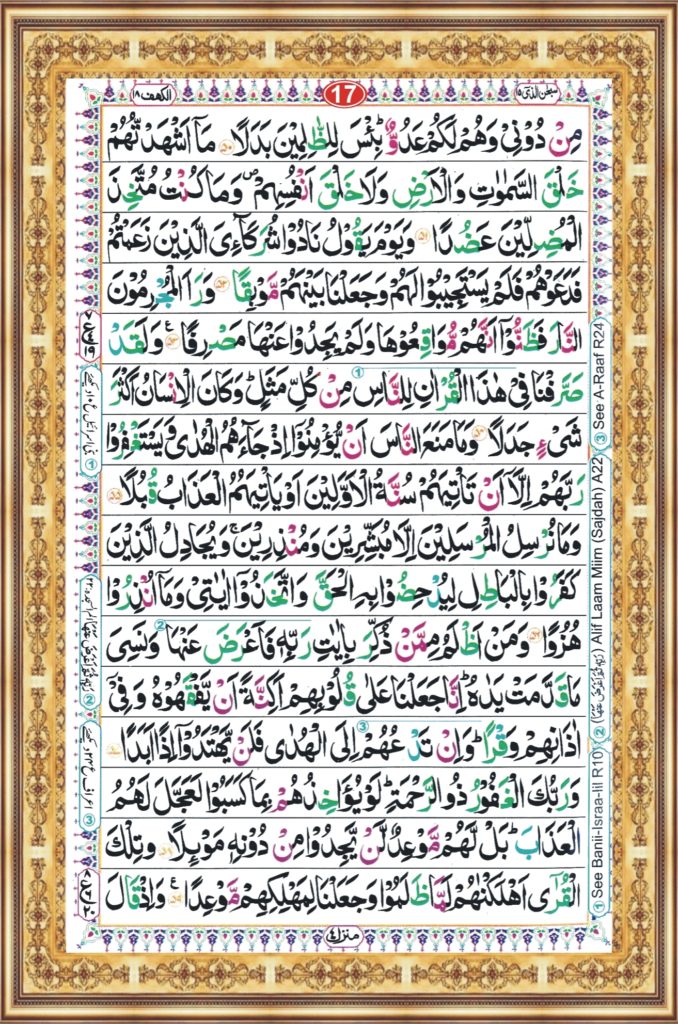 الكهف ١٨
17
سبحن الذی ١٥
مِنْ دُوْنِیْ وَهُمْ لَكُمْ عَدُوٌّ ؕ بِئْسَ لِلظّٰلِمِیْنَ بَدَلًا ﴿۵۰﴾ مَاۤ اَشْهَدْتُّهُمْ
خَلْقَ السَّمٰوٰتِ وَ الْاَرْضِ وَ لَا خَلْقَ اَنْفُسِهِمْ ۪ وَ مَا كُنْتُ مُتَّخِذَ
الْمُضِلِّیْنَ عَضُدًا ﴿۵۱﴾ وَ یَوْمَ یَقُوْلُ نَادُوْا شُرَكَآءِیَ الَّذِیْنَ زَعَمْتُمْ
فَدَعَوْهُمْ فَلَمْ یَسْتَجِیْبُوْا لَهُمْ وَ جَعَلْنَا بَیْنَهُمْ مَّوْبِقًا ﴿۵۲﴾ وَ رَاَ الْمُجْرِمُوْنَ
النَّارَ فَظَنُّوْۤا اَنَّهُمْ مُّوَاقِعُوْهَا وَ لَمْ یَجِدُوْا عَنْهَا مَصْرِفًا ﴿۵۳﴾ ع وَ لَقَدْ
صَرَّفْنَا فِیْ هٰذَا الْقُرْاٰنِ لِلنَّاسِ مِنْ كُلِّ مَثَلٍ ؕ وَ كَانَ الْاِنْسَانُ اَكْثَرَ
شَیْءٍ جَدَلًا ﴿۵۴﴾ وَ مَا مَنَعَ النَّاسَ اَنْ یُّؤْمِنُوْۤا اِذْ جَآءَهُمُ الْهُدٰی وَ یَسْتَغْفِرُوْا
رَبَّهُمْ اِلَّاۤ اَنْ تَاْتِیَهُمْ سُنَّةُ الْاَوَّلِیْنَ اَوْ یَاْتِیَهُمُ الْعَذَابُ قُبُلًا ﴿۵۵﴾
وَ مَا نُرْسِلُ الْمُرْسَلِیْنَ اِلَّا مُبَشِّرِیْنَ وَ مُنْذِرِیْنَ ۚ وَ یُجَادِلُ الَّذِیْنَ
كَفَرُوْا بِالْبَاطِلِ لِیُدْحِضُوْا بِهِ الْحَقَّ وَ اتَّخَذُوْۤا اٰیٰتِیْ وَ مَاۤ اُنْذِرُوْا
هُزُوًا ﴿۵۶﴾ وَ مَنْ اَظْلَمُ مِمَّنْ ذُكِّرَ بِاٰیٰتِ رَبِّهٖ فَاَعْرَضَ عَنْهَا وَ نَسِیَ
مَا قَدَّمَتْ یَدٰهُ ؕ اِنَّا جَعَلْنَا عَلٰی قُلُوْبِهِمْ اَكِنَّةً اَنْ یَّفْقَهُوْهُ وَ فِیْۤ
اٰذَانِهِمْ وَقْرًا ؕ وَ اِنْ تَدْعُهُمْ اِلَی الْهُدٰی فَلَنْ یَّهْتَدُوْۤا اِذًا اَبَدًا ﴿۵۷﴾
وَ رَبُّكَ الْغَفُوْرُ ذُو الرَّحْمَةِ ؕ لَوْ یُؤَاخِذُهُمْ بِمَا كَسَبُوْا لَعَجَّلَ لَهُمُ
الْعَذَابَ ؕ بَلْ لَّهُمْ مَّوْعِدٌ لَّنْ یَّجِدُوْا مِنْ دُوْنِهٖ مَوْىِٕلًا ﴿۵۸﴾ وَ تِلْكَ
الْقُرٰۤی اَهْلَكْنٰهُمْ لَمَّا ظَلَمُوْا وَ جَعَلْنَا لِمَهْلِكِهِمْ مَّوْعِدًا ﴿۵۹﴾ ع وَ اِذْ قَالَ
منزل ٤
① See Banii-Israa-Iil R10 ② Alif Laam Miim (Sajdah) A22 ③ See A-Raaf R24